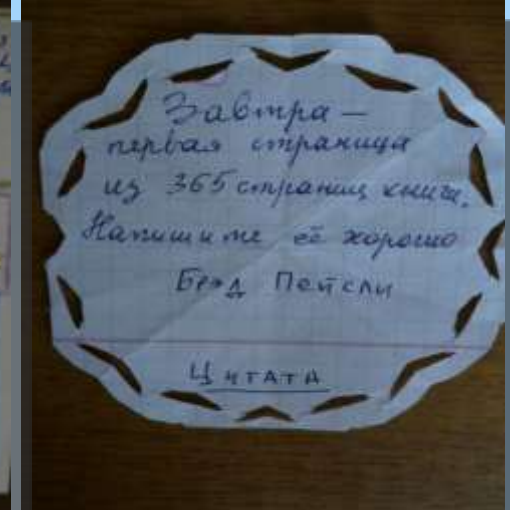 Завтра —
первая страница
из 365 страниц книги.
Напишите её хорошо
Брэд Пейсли
Цитата